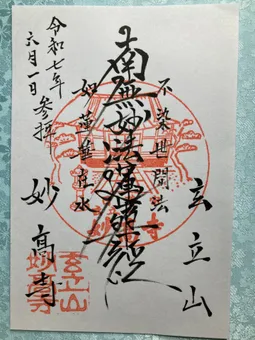 玄立山
不染世間法
南無妙法蓮華経
如蓮華在水
妙高寺
令和七年
六月一日 参拝
玄立山
妙高寺